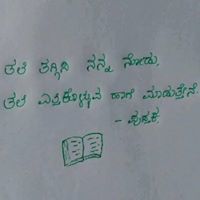 ತಲೆ ತಗ್ಗಿಸಿ ನನ್ನ ನೋಡು,
ತಲೆ ಎತ್ತಿಕೊಳ್ಳುವ ಹಾಗೆ ಮಾಡುತ್ತೇನೆ.
- ಪುಸ್ತಕ